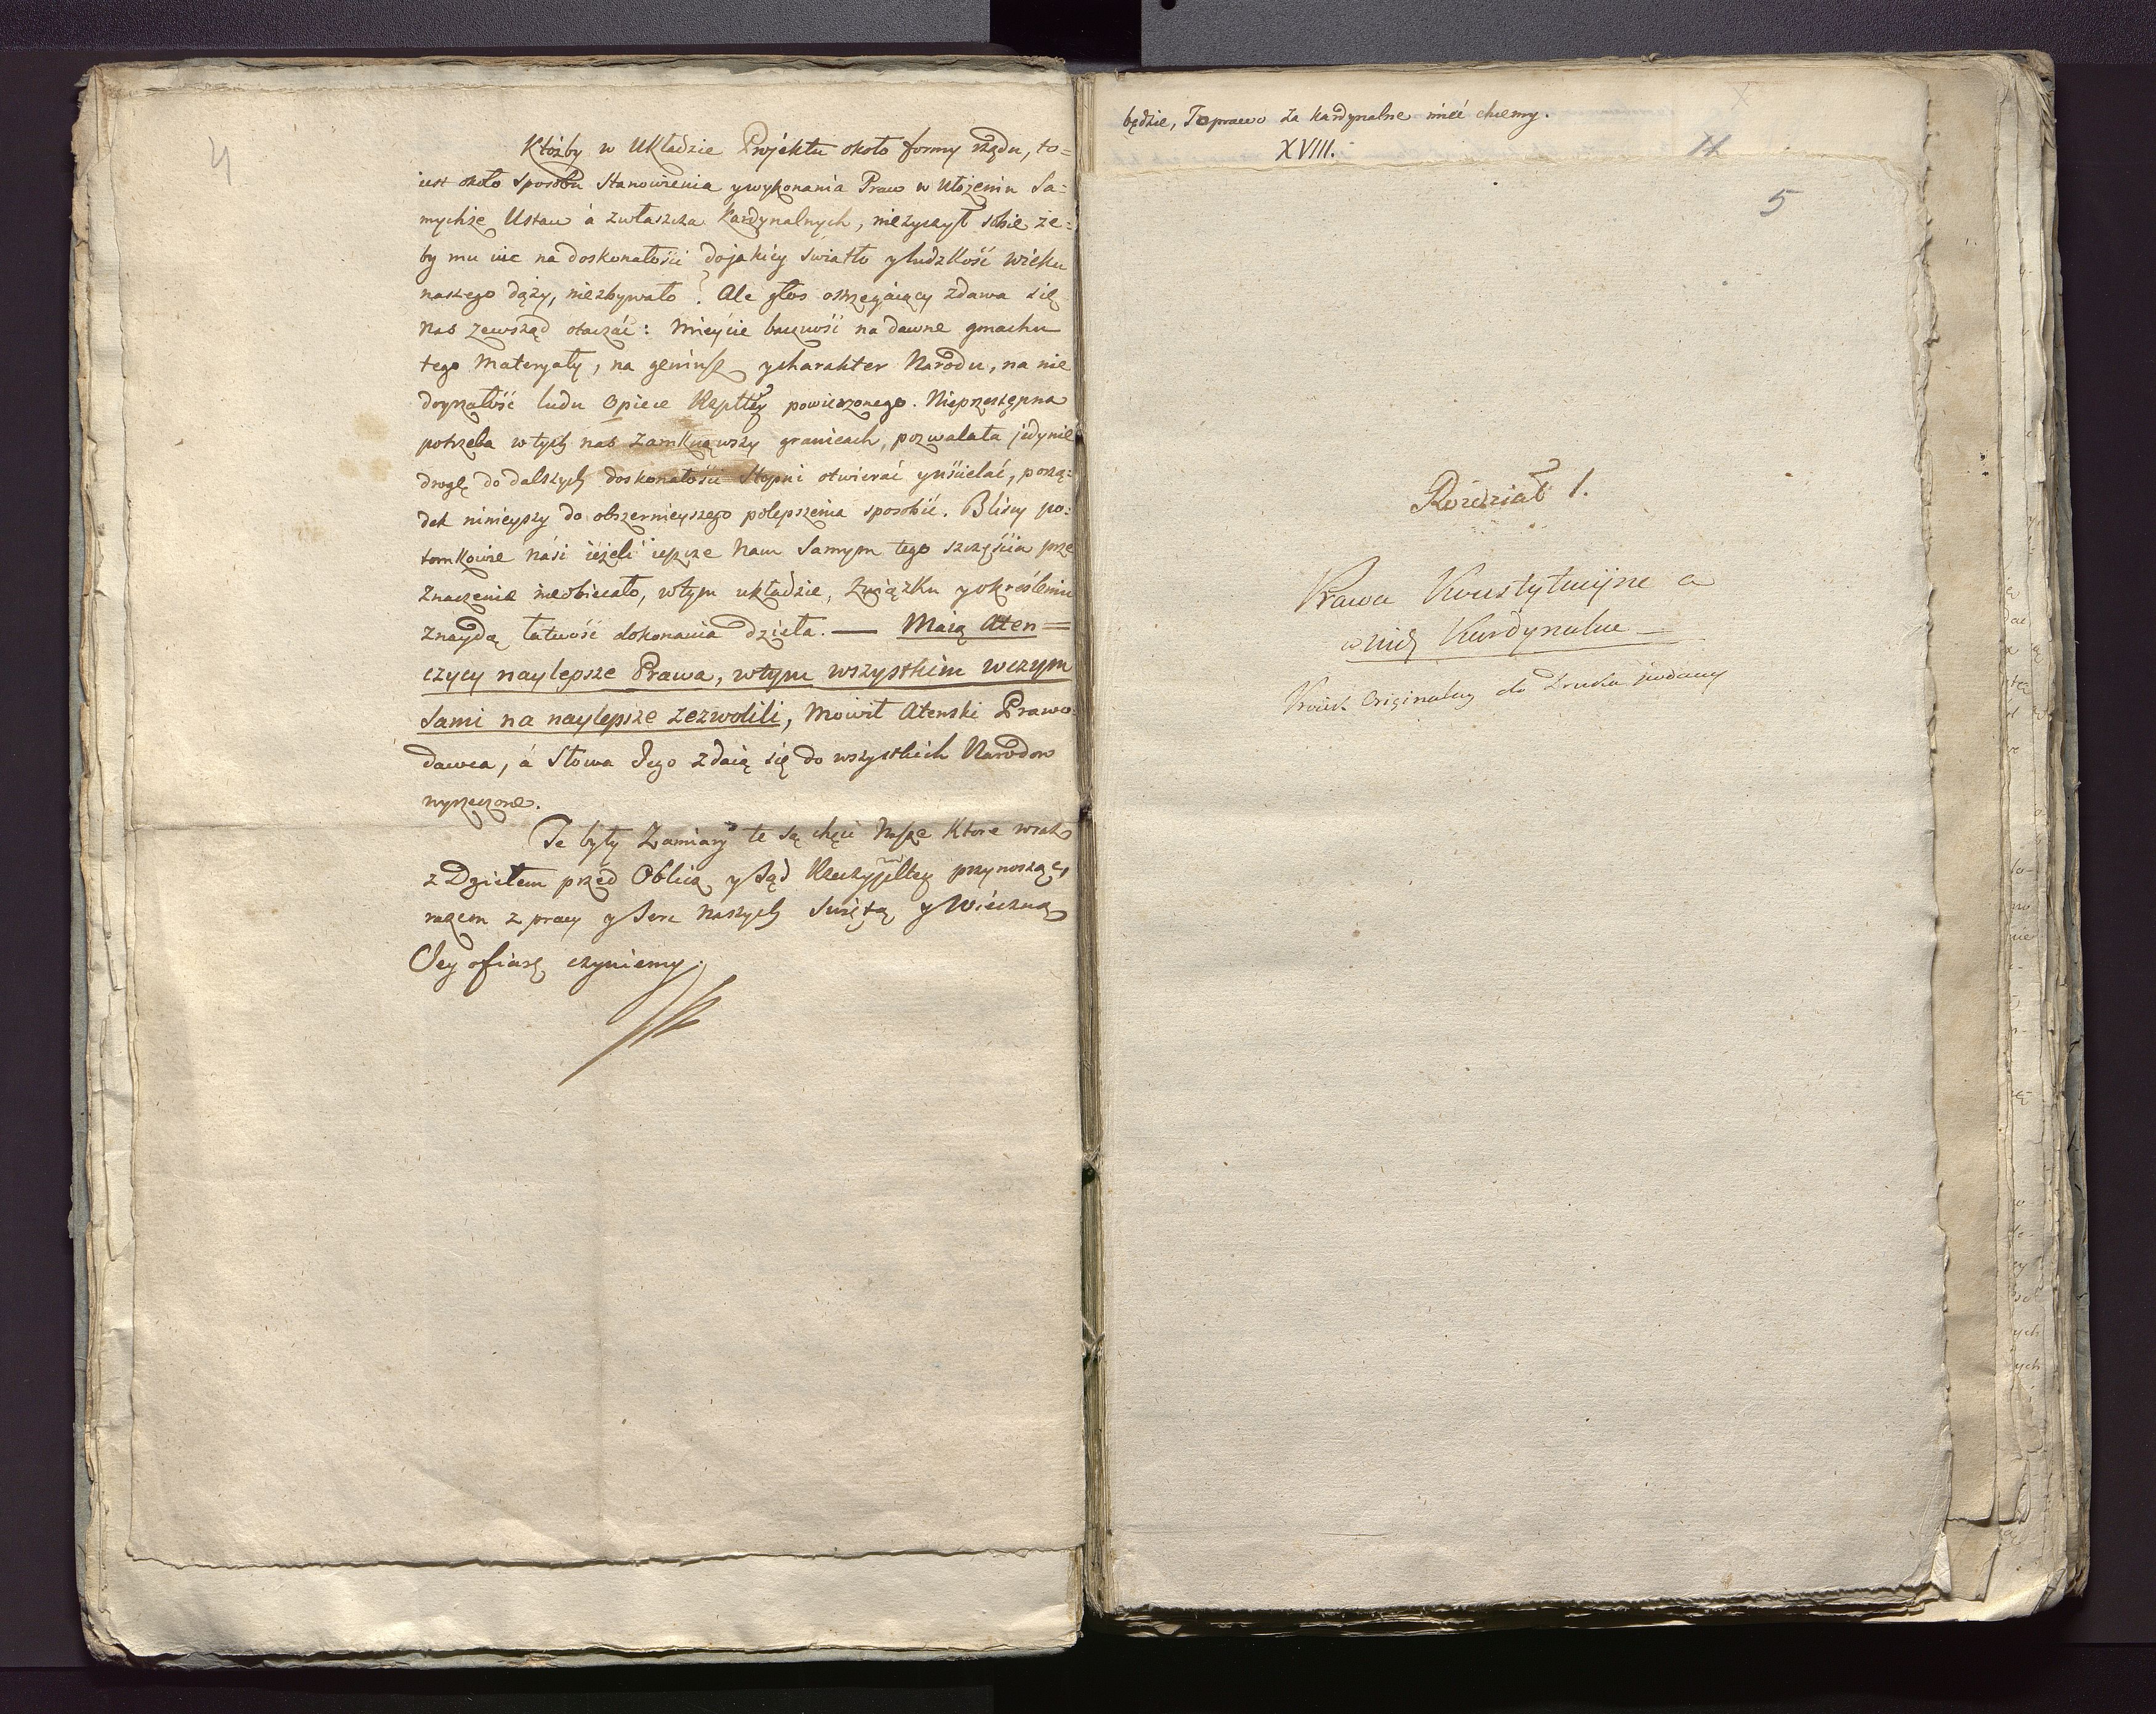 4
Ktożby w Układzie Projektu około formy rządu, to=
iest około sposobu stanowienia y wykonania Praw w ułożeniu Sa=
mychże Ustaw á zwłaszcza Kardynalnych, nieżyczył sobie że=
by mu nic na doskonałości do jakiey światło y ludzkość wieku
naszego dąży, niezbywało? Ale głos ostrzegaiący zdawa się
nas zewsząd otaczać: Mieycie baczność na dawne gmachu
tego Materyały, na geniusz y charakter Narodu, na nie
doyrzałość ludu Opiece Rzpltey powierzonego. Nieprzestępna
potrzeba w tych nas zamknąwszy granicach, pozwalała jedynie
drogę do dalszych doskonałości Stopni otwierać y uścielać, porzą=
dek ninieyszy do obszernieyszego polepszenia sposobić. Bliscy po=
tomkowie nasi ieżeli ieszcze Nam Samym tego szczęścia prze
znaczenie nieobiecało, w tym układzie, Związku y określeniu
znaydą łatwość dokonania dzieła. — Maią Aten=
czycy naylepsze Prawa, w tym wszystkim w czym
sami na naylepsze zezwolili, mowił Atenski Prawo=
dawca, á Słowa Jego zdaią się do wszystkich Narodow
wyrzeczone.
Te były Zamiary te są chęci Nasze Ktore wraz
z Dziełem przed Oblicze y Sąd Rzeczypltey przynosząc,
razem z pracy y Serc naszych Swiętą y Wieczną
Jey ofiarę czyniemy.
będzie, To prawo za Kardynalne mieć chcemy.
XVIII.
5
Rozdział 1.
Prawa Konstytucyjne a
w nich Kardynalne —
Originalny do Druku podany